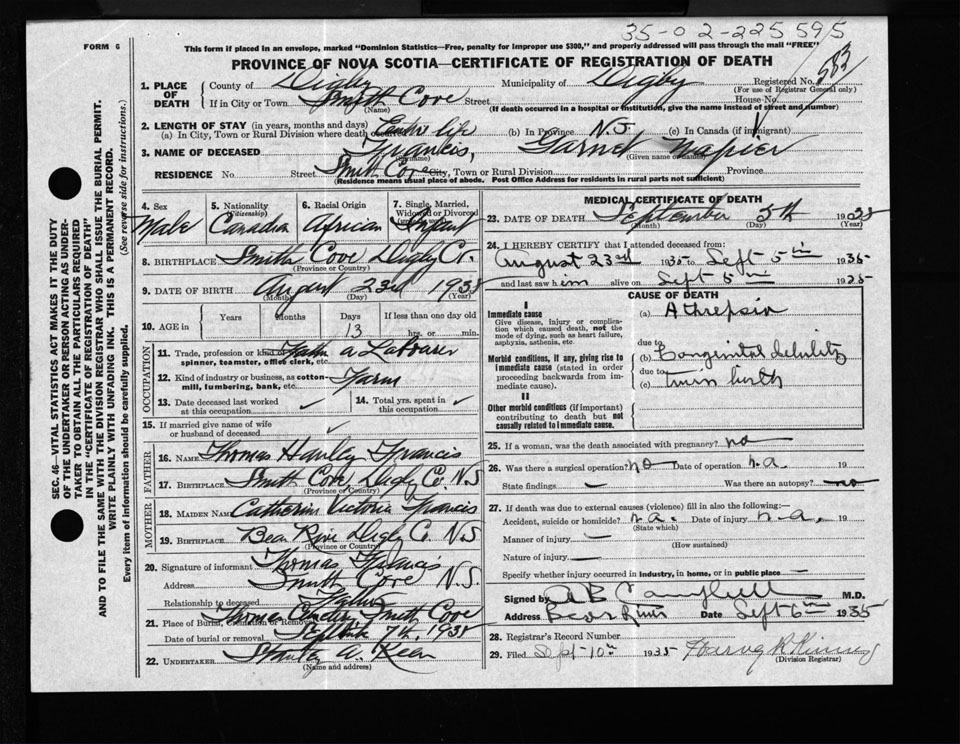 35-02-225595
FORM 6
This form if placed in an envelope, marked "Dominion Statistics—Free, penalty for improper use $300," and properly addressed will pass through the mail "FREE"
PROVINCE OF NOVA SCOTIA—CERTIFICATE OF REGISTRATION OF DEATH
SEC. 46—VITAL STATISTICS ACT MAKES IT THE DUTY
OF THE UNDERTAKER OR PERSON ACTING AS UNDER-
TAKER TO OBTAIN ALL THE PARTICULARS REQUIRED
IN THE "CERTIFICATE OF REGISTRATION OF DEATH"
AND TO FILE THE SAME WITH THE DIVISION REGISTRAR WHO SHALL ISSUE THE BURIAL PERMIT.
WRITE PLAINLY WITH UNFADING INK. THIS IS A PERMANENT RECORD.
Every item of information should be carefully supplied. (See reverse side for instructions.)
1. PLACE OF DEATH County of Digby Municipality of Digby Registered No. 583
(For use of Registrar General only)
If in City or Town Smith Cove Street House No.
(Name) (If death occurred in a hospital or institution, give the name instead of street and number)
2. LENGTH OF STAY (in years, months and days)
(a) In City, Town or Rural Division where death occurred Entire life (b) In Province N.S. (c) In Canada (if immigrant)
3. NAME OF DECEASED Francis, Garnet Napier
(Surname) (Given name or names)
RESIDENCE No Street Smith Cove City, Town or Rural Division Province
(Residence means usual place of abode. Post Office Address for residents in rural parts not sufficient)
4. Sex Male
5. Nationality (Citizenship) Canadian
6. Racial Origin African
7. Single, Married, Widowed or Divorced Infant
8. BIRTHPLACE Smith Cove Digby Co.
(Province or Country)
9. DATE OF BIRTH August 23rd 1935
(Month) (Day) (Year)
10. AGE in Years Months Days 13 If less than one day old hrs. or min.
OCCUPATION
11. Trade, profession or kind of a Labourer
spinner, teamster, office clerk, etc.
12. Kind of industry or business, as cotton- Farm
mill, lumbering, bank, etc.
13. Date deceased last worked at this occupation ✓
14. Total yrs. spent in this occupation ✓
15. If married give name of wife or husband of deceased ✓
FATHER
16. Name Thomas Hanley Francis
17. Birthplace Smith Cove, Digby Co. N.S
(Province or Country)
MOTHER
18. Maiden Name Catherin Victoria Francis
19. Birthplace Bear River Digby Co. N.S
(Province or Country)
20. Signature of informant Thomas Francis
Address Smith Cove N.S.
Relationship to deceased Father
21. Place of Burial, Cremation or Removal Smith Cove
Date of burial or removal 7th, 1935
22. UNDERTAKER
(Name and address)
MEDICAL CERTIFICATE OF DEATH
23. DATE OF DEATH September 5th 1935
(Month) (Day) (Year)
24. I HEREBY CERTIFY that I attended deceased from:
August 23rd 1935 to Sept 5th 1935
and last saw him alive on Sept 5th 1935
CAUSE OF DEATH
I
Immediate cause (a) Athrepsia
Give disease, injury or complication which caused death, not the mode of dying, such as heart failure, asphyxia, asthenia, etc.
due to
Morbid conditions, if any, giving rise to immediate cause (stated in order proceeding backwards from immediate cause). (b) Congenital Debility
due to
(c) twin birth
II
Other morbid conditions (if important) contributing to death but not causally related to immediate cause.
25. If a woman, was the death associated with pregnancy? no
26. Was there a surgical operation? no Date of operation n.a. 19
State findings — Was there an autopsy? no
27. If death was due to external causes (violence) fill in also the following:—
Accident, suicide or homicide? n.a. Date of injury n.a. 19
(State which)
Manner of injury —
(How sustained)
Nature of injury —
Specify whether injury occurred in industry, in home, or in public place —
Signed by Campbell M.D.
Address Bear River Date Sept 6th 1935
28. Registrar's Record Number
29. Filed Sept-10th 1935
(Division Registrar)